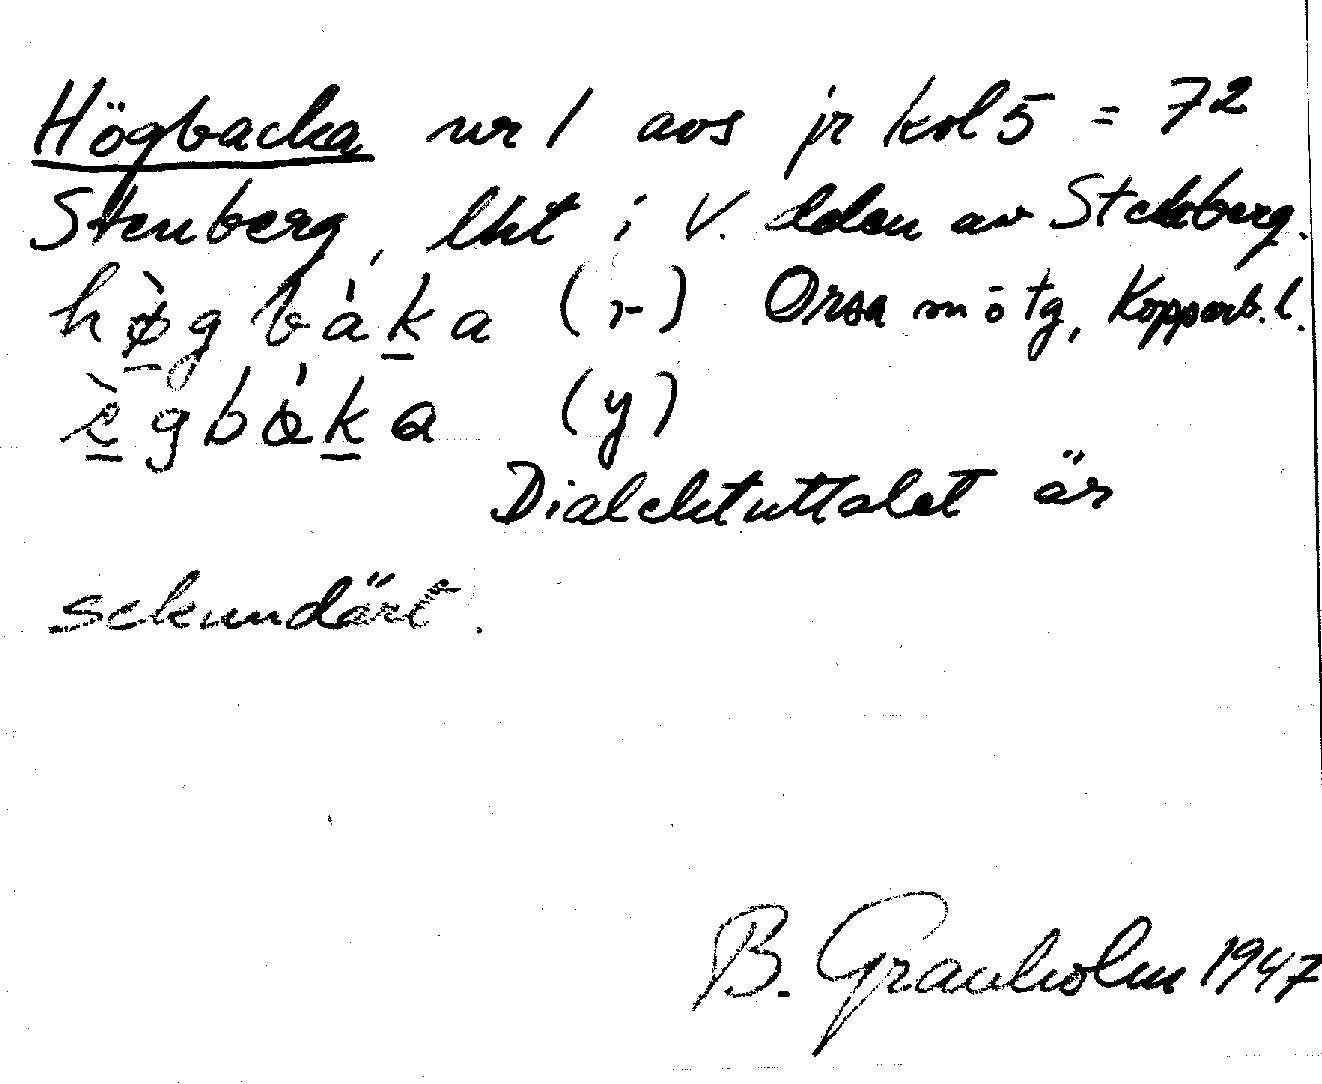 Högbacka nr 1 avs jr kol 5 = 72
Stenberg, lht i V. delen av Stenberg.
hø̀gbàka (r) Orsa m o tg, Kopparb. l.
ègbàka (y)
Dialektuttalet är
sekundärt.
B. Granholm 1947